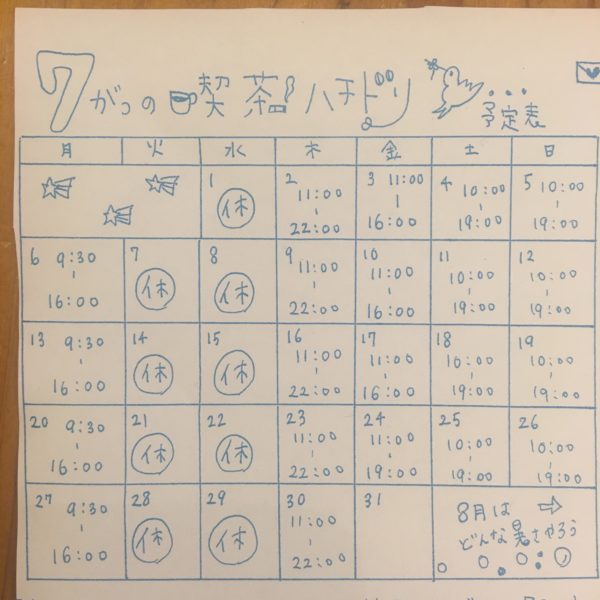 7がつの喫茶ハチドリ
予定表
月 火 水 木 金 土 日
1 休 2 11:00-22:00 3 11:00-16:00 4 10:00-19:00 5 10:00-19:00
6 9:30-16:00 7 休 8 休 9 11:00-22:00 10 11:00-16:00 11 10:00-19:00 12 10:00-19:00
13 9:30-16:00 14 休 15 休 16 11:00-22:00 17 11:00-16:00 18 10:00-19:00 19 10:00-19:00
20 9:30-16:00 21 休 22 休 23 11:00-22:00 24 11:00-19:00 25 10:00-19:00 26 10:00-19:00
27 9:30-16:00 28 休 29 休 30 11:00-22:00 31
8月は
どんな暑さやろう